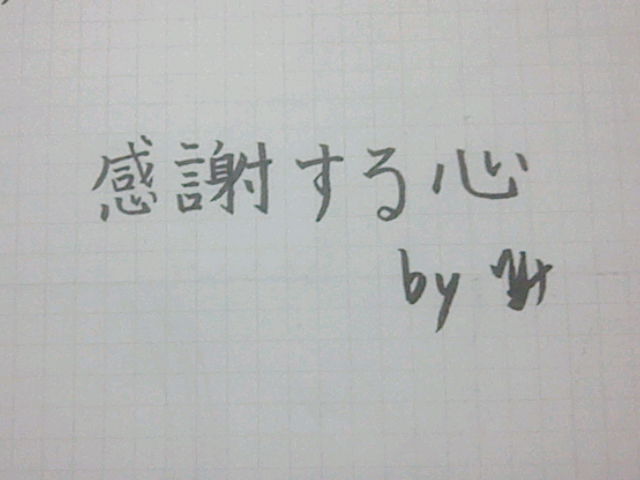 感謝する心
by